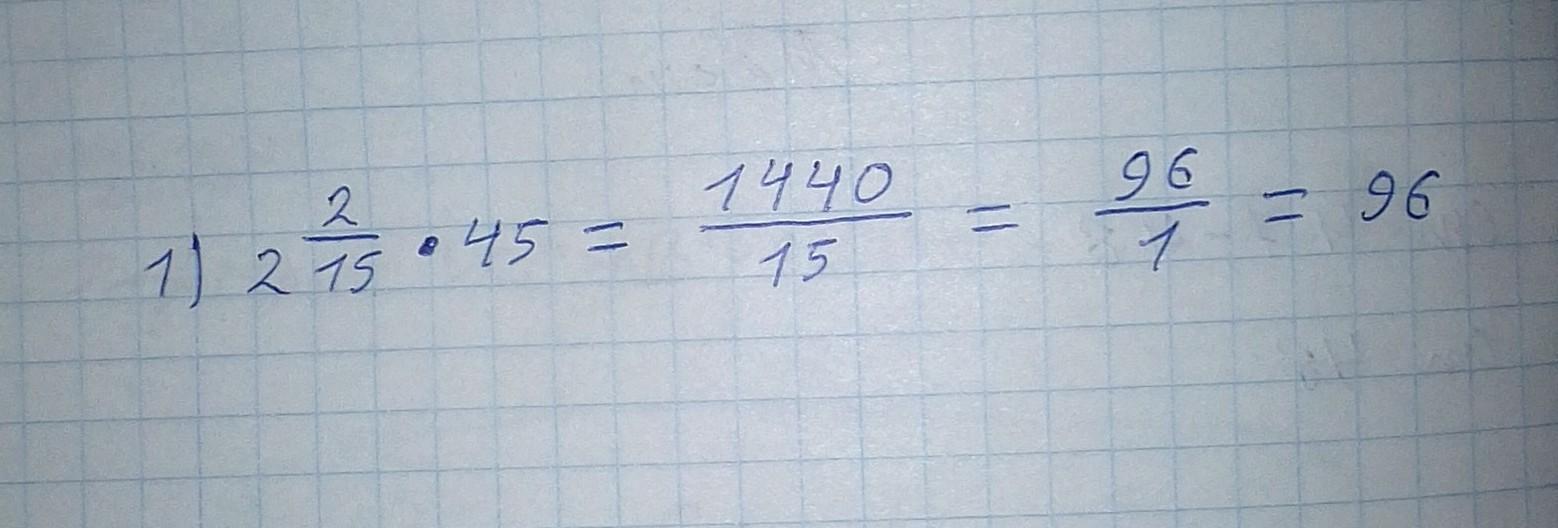 1) 2 2/15 · 45 = 1440/15 = 96/1 = 96